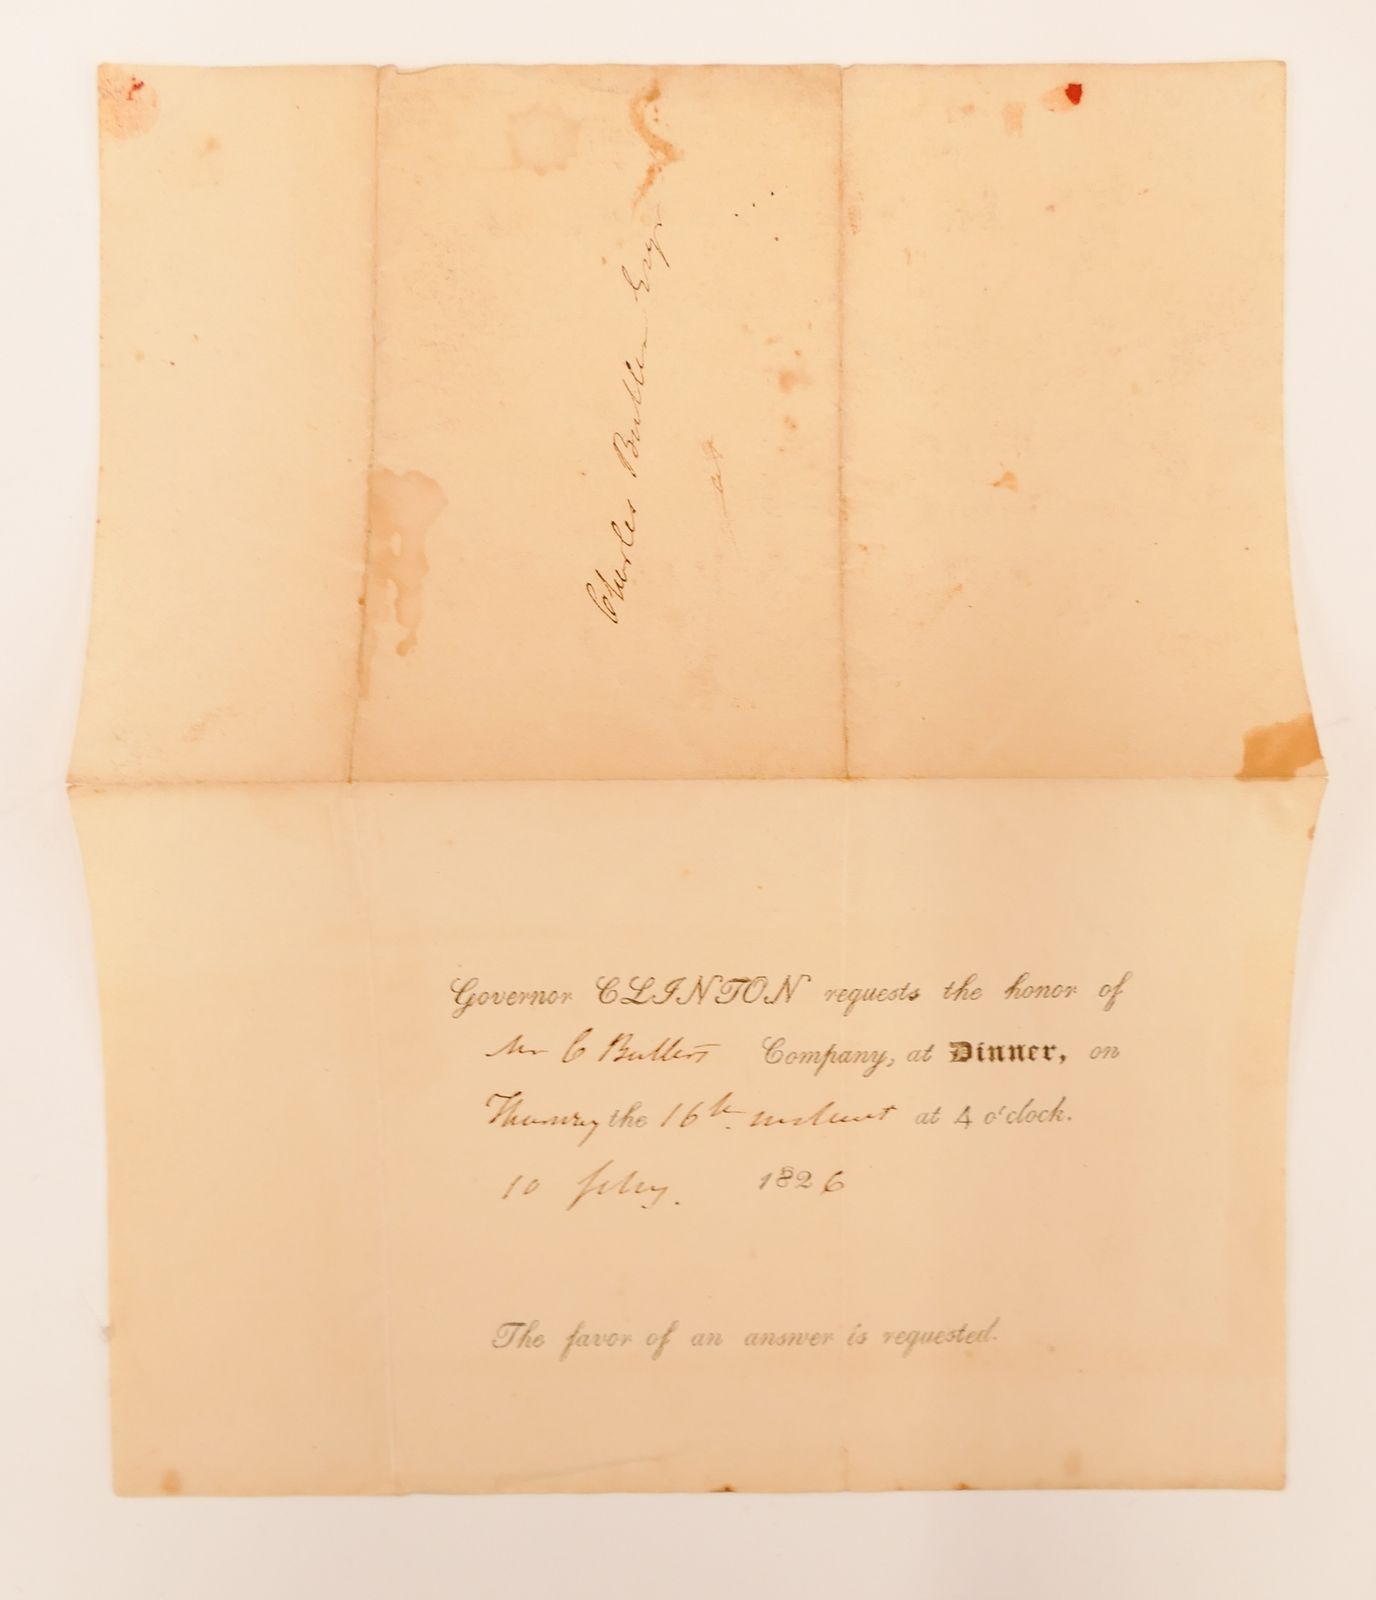 Charles Butler Esqr
Governor CLINTON requests the honor of
Mr C Butlers Company, at Dinner, on
Thursday the 16th. instant at 4 o'clock.
10 feby. 1826
The favor of an answer is requested.